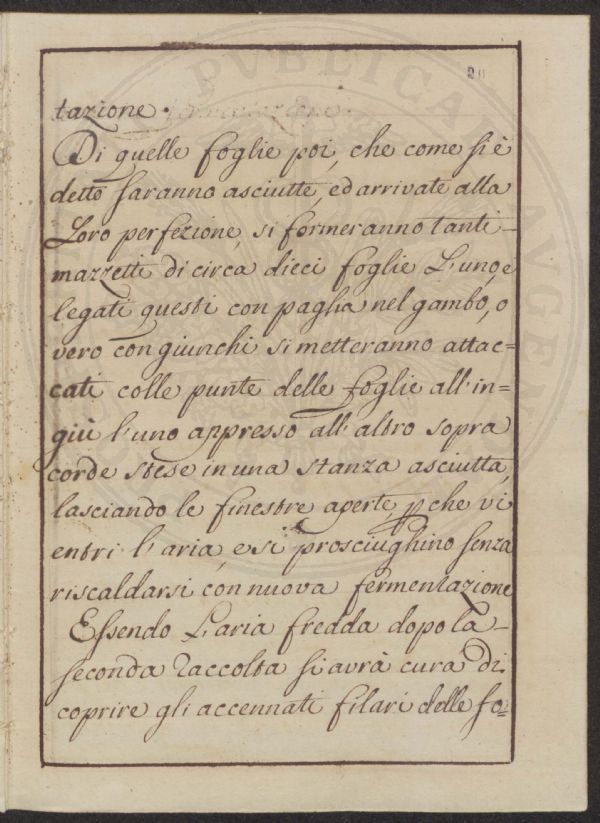 20
tazione.
Di quelle foglie poi, che come si è
detto saranno asciutte, ed arrivate alla
Loro perfezione, si formeranno tanti
mazzetti di circa dieci foglie L'uno, e
legati questi con paglia nel gambo, o
vero con giunchi si metteranno attac=
cati colle punte delle foglie all'in=
giù l'uno appresso all'altro sopra
corde stese in una stanza asciutta,
lasciando le finestre aperte, pche vi
entri l'aria, e si prosciughino senza
riscaldarsi con nuova fermentazione
Essendo L'aria fredda dopo la
seconda raccolta si avrà cura di
coprire gli accennati filari delle fo=